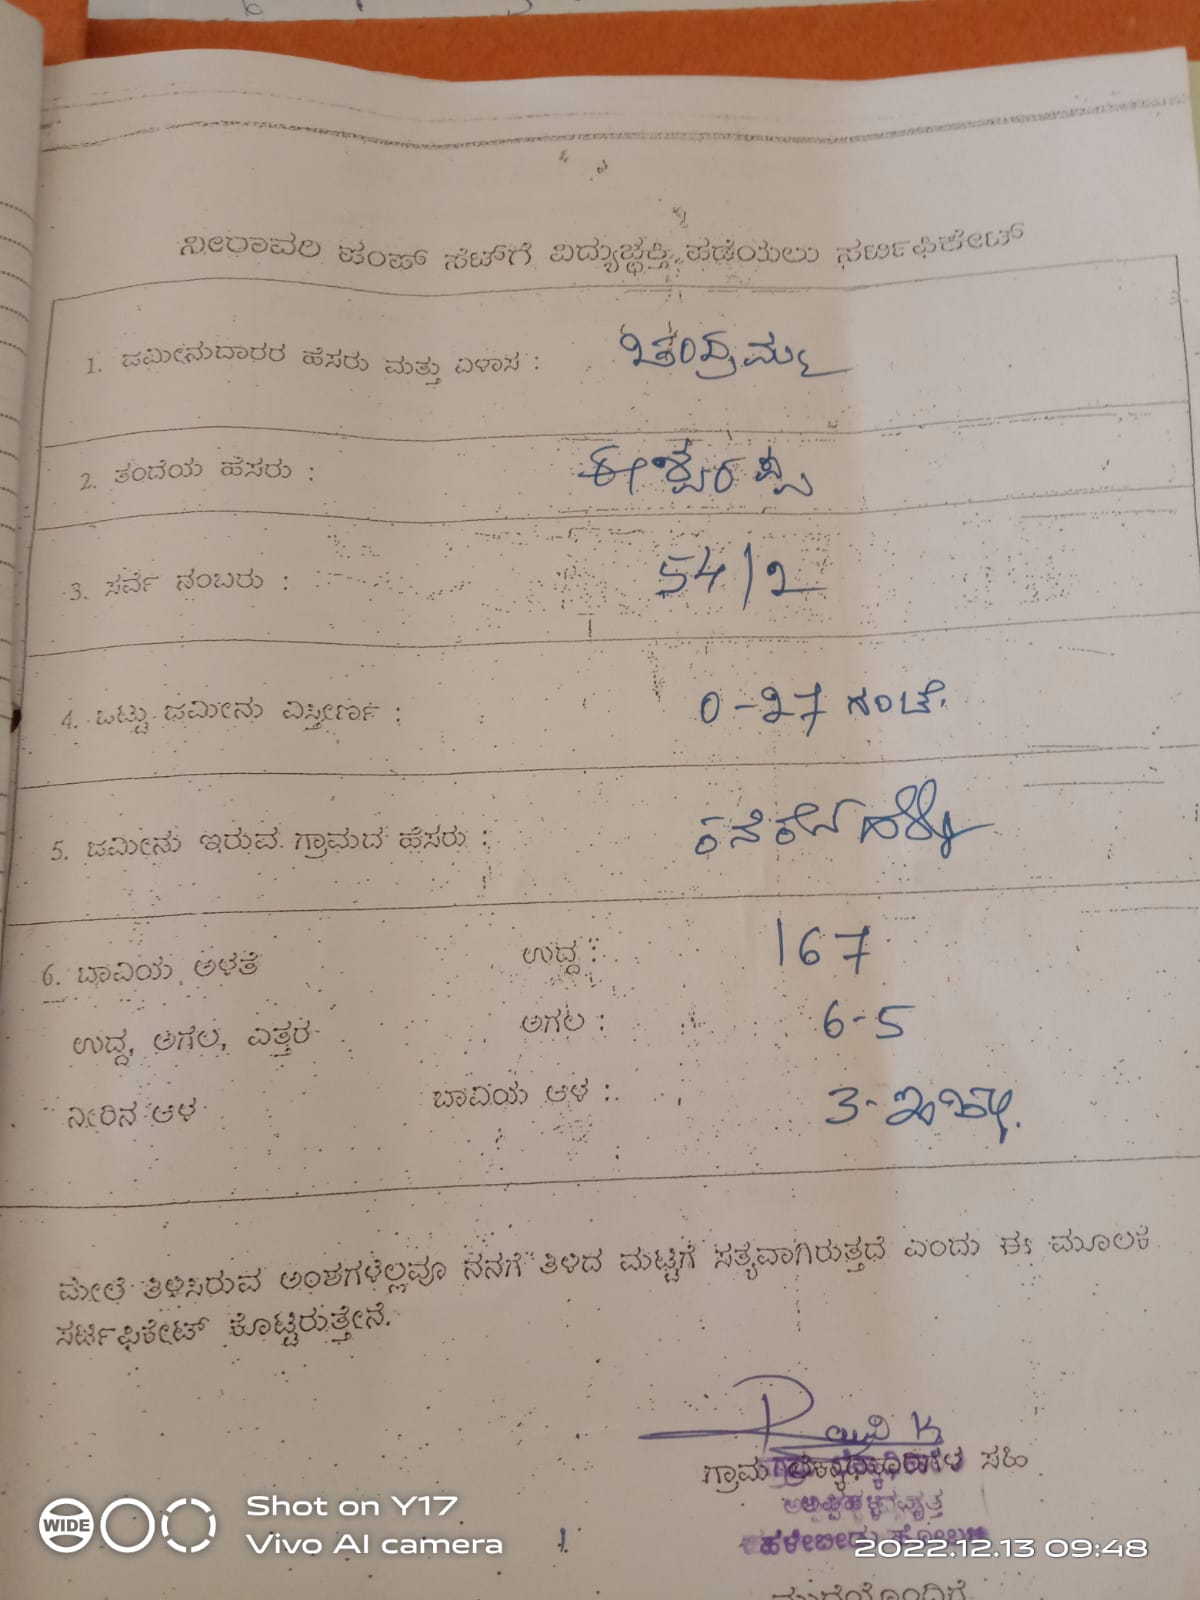 ನೀರಾವರಿ ಪಂಪ್ ಸೆಟ್‌ಗೆ ವಿದ್ಯುಚ್ಛಕ್ತಿ ಪಡೆಯಲು ಸರ್ಟಿಫಿಕೇಟ್
1. ಜಮೀನುದಾರರ ಹೆಸರು ಮತ್ತು ವಿಳಾಸ : ಚಂದ್ರಮ್ಮ
2. ತಂದೆಯ ಹೆಸರು : ಈಶ್ವರಪ್ಪ
3. ಸರ್ವೆ ನಂಬರು : 54/2
4. ಒಟ್ಟು ಜಮೀನು ವಿಸ್ತೀರ್ಣ : 0-27 ಗಂಟೆ.
5. ಜಮೀನು ಇರುವ ಗ್ರಾಮದ ಹೆಸರು :
6. ಬಾವಿಯ ಅಳತೆ ಉದ್ದ : 167
ಉದ್ದ, ಅಗಲ, ಎತ್ತರ ಅಗಲ : 6-5
ನೀರಿನ ಆಳ ಬಾವಿಯ ಆಳ : 3-ಇಂಚು.
ಮೇಲೆ ತಿಳಿಸಿರುವ ಅಂಶಗಳೆಲ್ಲವೂ ನನಗೆ ತಿಳಿದ ಮಟ್ಟಿಗೆ ಸತ್ಯವಾಗಿರುತ್ತದೆ ಎಂದು ಈ ಮೂಲಕ
ಸರ್ಟಿಫಿಕೇಟ್ ಕೊಟ್ಟಿರುತ್ತೇನೆ.
ಗ್ರಾಮ ಸಹಿ
ಹಳೇಬೀಡು ಹೋಬಳಿ
WIDE Shot on Y17
Vivo AI camera
2022.12.13 09:48